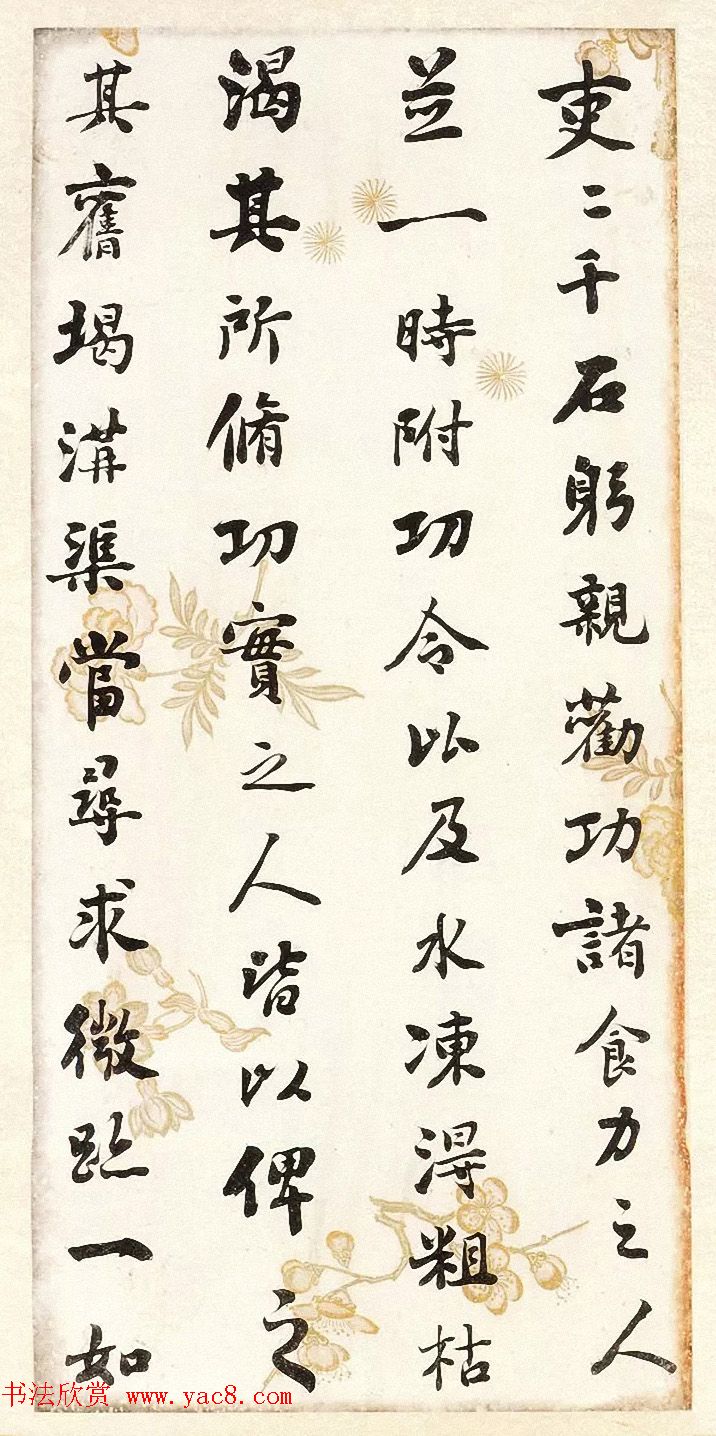 吏二千石躬親勸功諸食力之人
並一時附功令以及水凍淂粗枯
渴其所脩功實之人皆以俾之
其舊堨溝渠當尋求微跡一如
书法欣赏 www.yac8.com